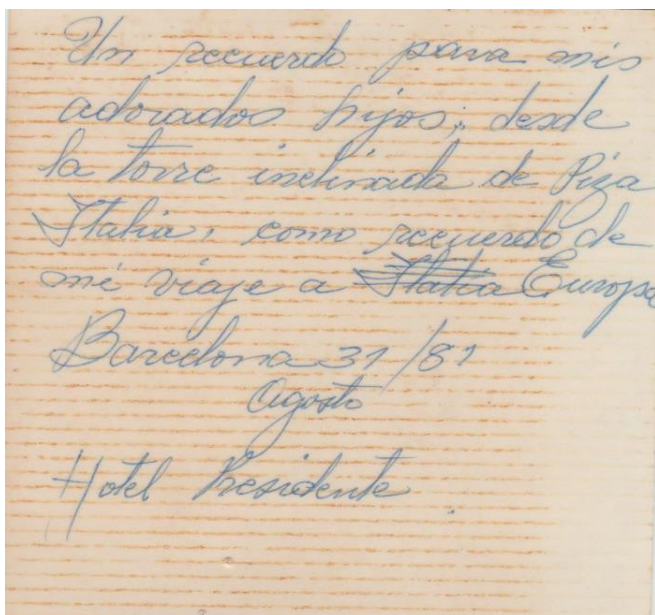 Un recuerdo para mis
adorados hijos; desde
la torre inclinada de Piza
Italia, como recuerdo de
mi viaje a Italia Europa
Barcelona 31/81
Agosto
Hotel Presidente